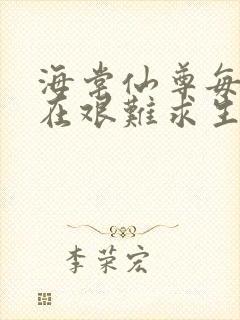 海棠仙尊每
在艰难求生
李荣宏